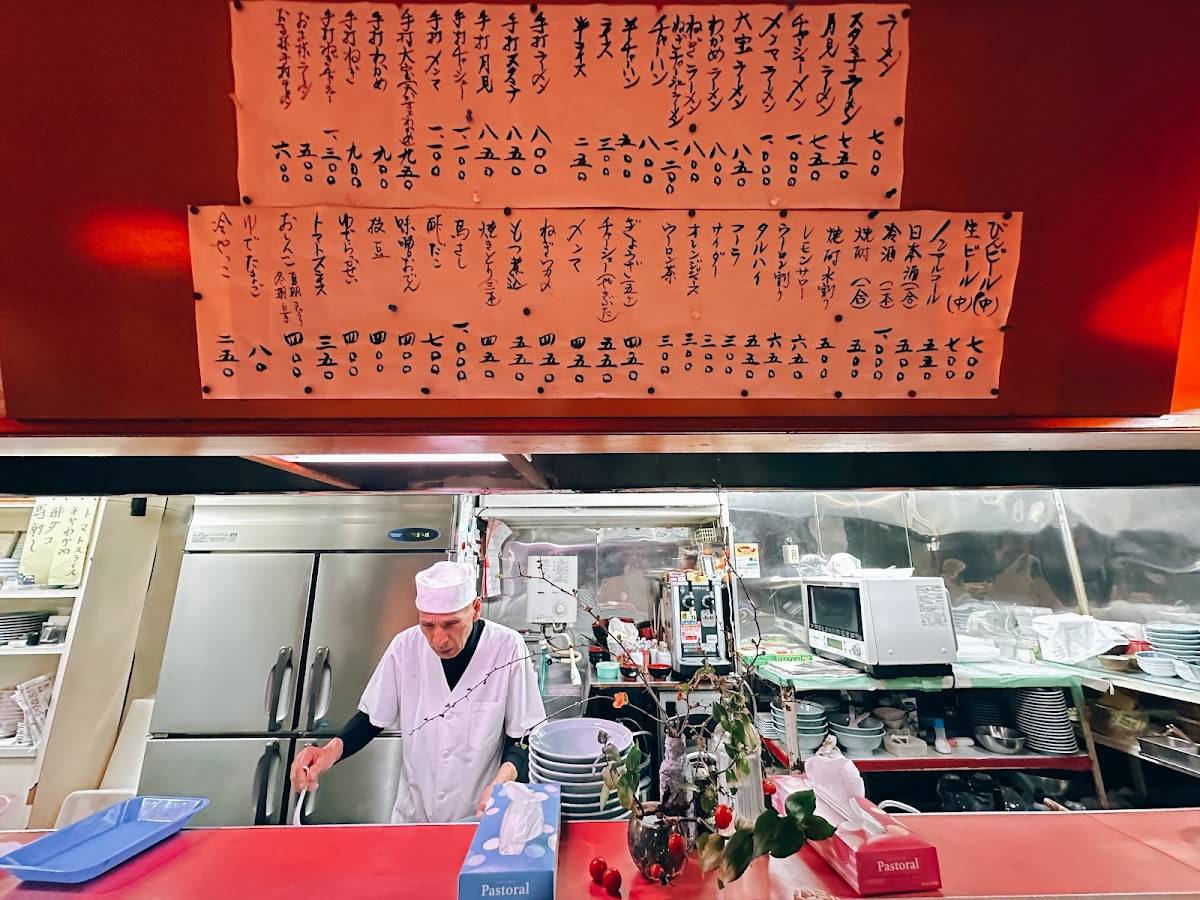 ラーメン 七〇〇
スタミナラーメン 七五〇
月見ラーメン 七五〇
チャーシューメン 一、〇〇〇
メンマラーメン 一、〇〇〇
大宝ラーメン 八五〇
わかめラーメン 八〇〇
ねぎラーメン 八〇〇
ねぎチャーシューラーメン 一、二〇〇
チャーハン 八〇〇
半チャーハン 五〇〇
ライス 三〇〇
半ライス 二五〇
手打ラーメン 八〇〇
手打スタミナ 八五〇
手打月見 八五〇
手打チャーシュー 一、一〇〇
手打メンマ 一、一〇〇
手打大宝 九五〇
手打わかめ 九〇〇
手打ねぎ 九〇〇
手打ねぎチャーシュー 一、三〇〇
お子様ラーメン 五〇〇
お子様手打ラーメン 六〇〇
びんビール(中) 七〇〇
生ビール(中) 七〇〇
ノンアルコール 五五〇
日本酒(一合) 五〇〇
冷酒(一本) 一、〇〇〇
焼酎(一合) 五〇〇
焼酎水割り 五〇〇
レモンサワー 六五〇
ウーロン割り 六五〇
タルハイ 五五〇
コーラ 三〇〇
サイダー 三〇〇
オレンジジュース 三〇〇
ウーロン茶 三〇〇
ぎょうざ(五ヶ) 四五〇
チャーシュー(やきぶた) 五五〇
メンマ 四五〇
ねぎツマミ 四五〇
もつ煮込 五五〇
焼きとり(三本) 四五〇
馬さし 一、〇〇〇
酢だこ 七〇〇
味噌おでん 四〇〇
枝豆 四〇〇
ゆでらっかせい 四〇〇
トマトスライス 三五〇
おしんこ 四〇〇
ゆでたまご 八〇
冷やっこ 二五〇
トマトスライス
ネギわかめ
酢ダコ
馬刺し
Pastoral
Pastoral